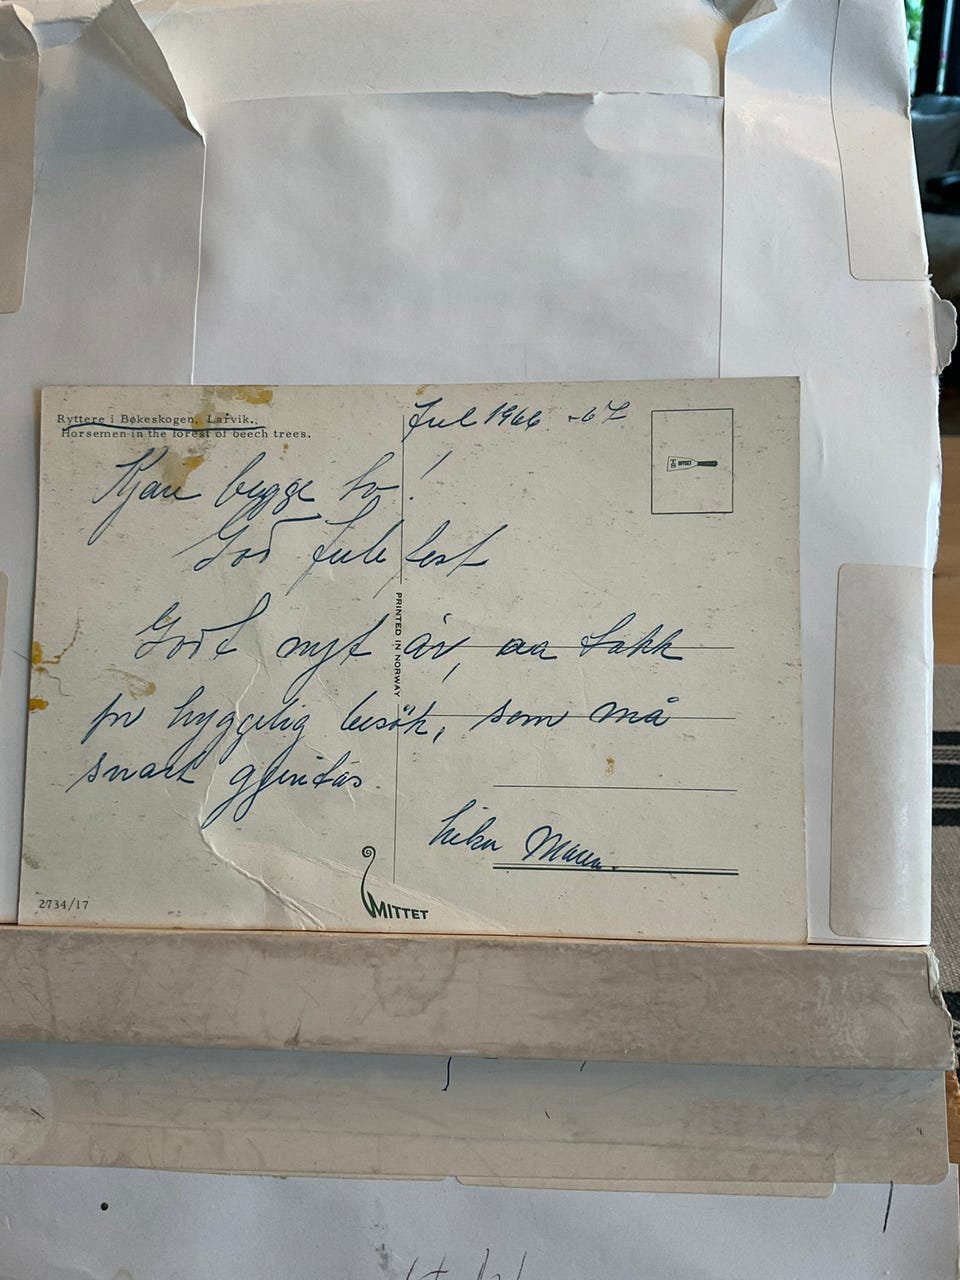 Ryttere i Bøkeskogen, Larvik.
Horsemen in the forest of beech trees.
Jul 1966 -67
Kjære begge to!
God jule fest
Godt nytt år, aa takk
for hyggelig besök, som må
snart gjentas.
hilsen
PRINTED IN NORWAY
OFFSET
2734/17
MITTET